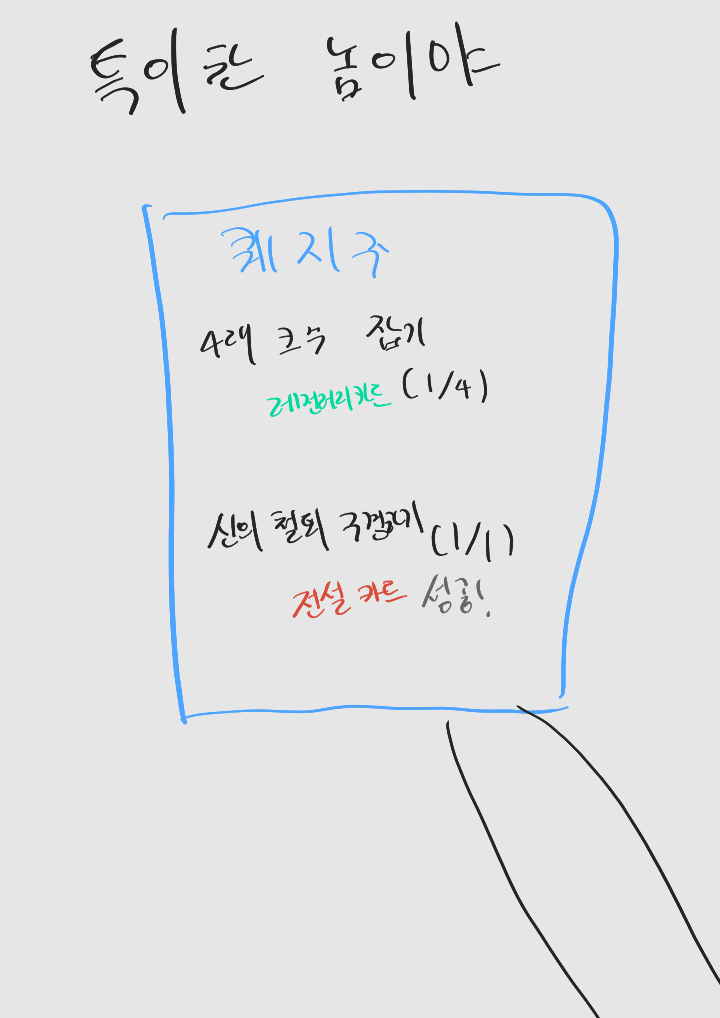 특이한 놈이야
퀘지주
4대 크수 잡기
레전더리카드 (1/4)
신의 철퇴 구경하기 (1/1)
전설 카드 성공!